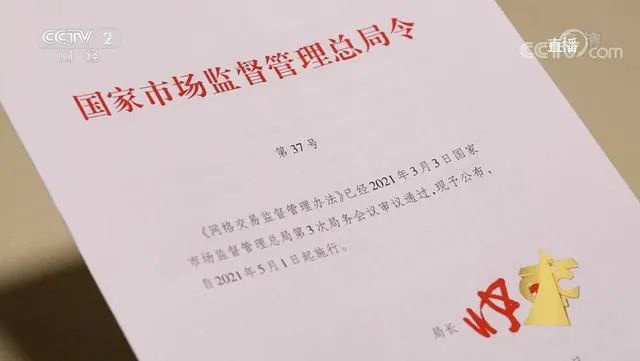 CCTV 2
财经
直播
CCTV.com
国家市场监督管理总局令
第37号
《网络交易监督管理办法》已经2021年3月3日国家
市场监督管理总局第3次局务会议审议通过，现予公布，
自2021年5月1日起施行。
局长